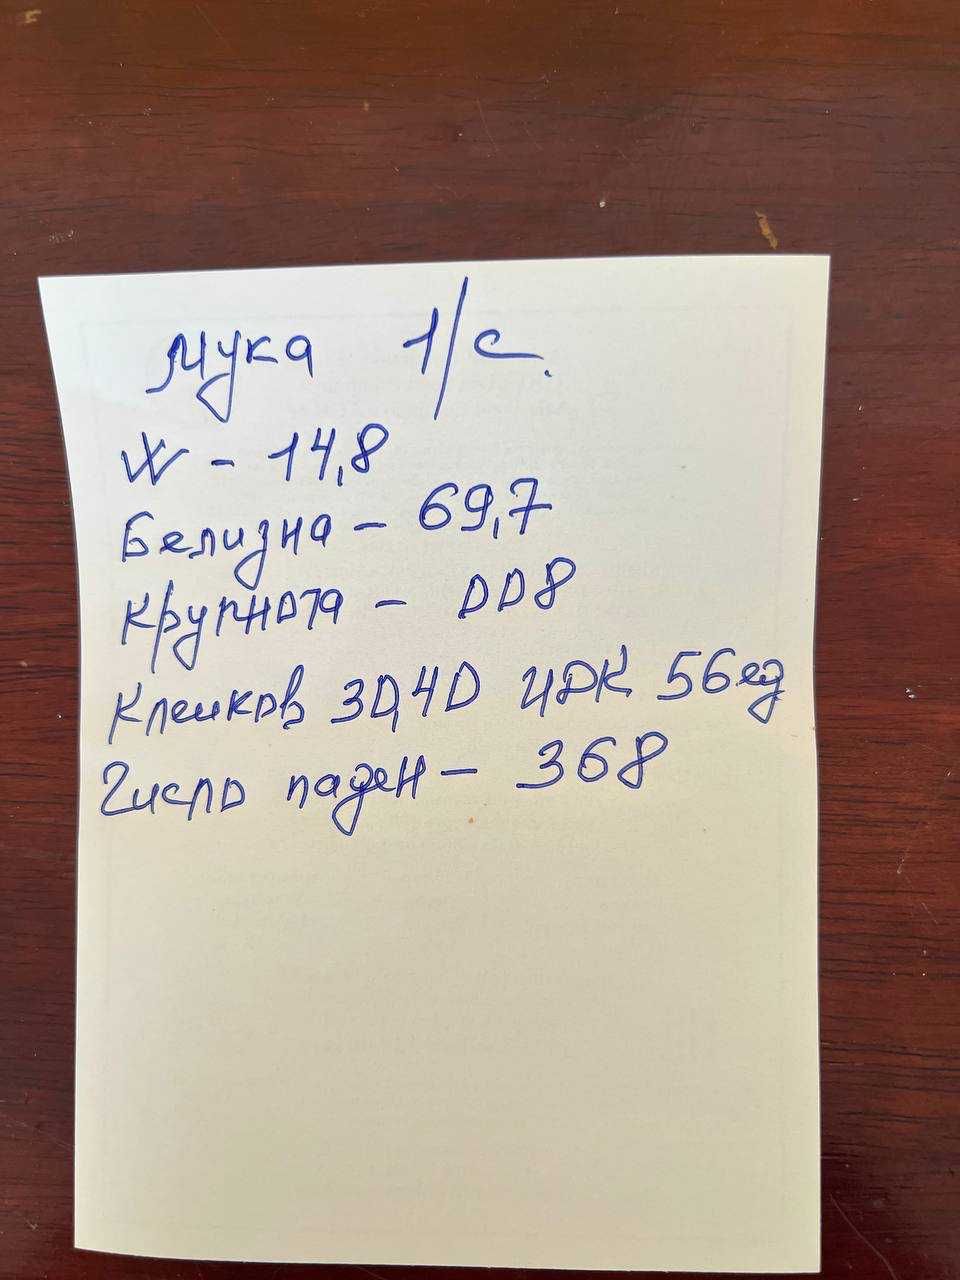 Мука 1/с.
W - 14,8
Белизна - 69,7
Крупнота - 008
Клеиков 30,40 ИДК 56 ед
Число паден - 368